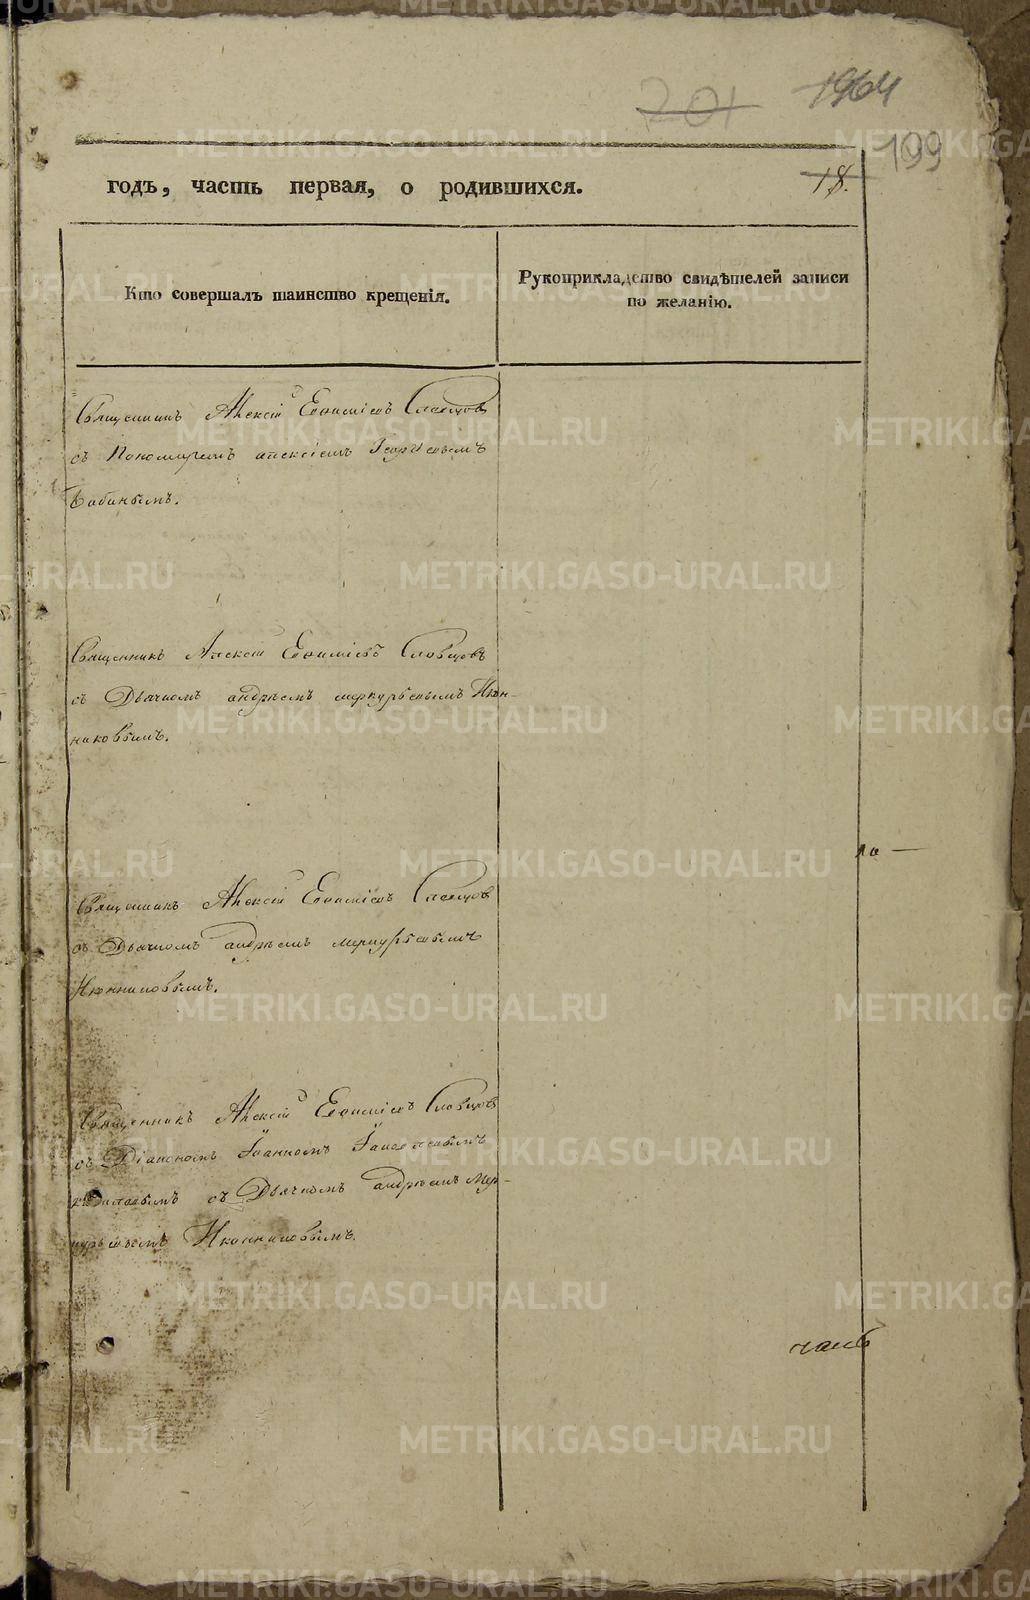 201
1964
199
18.
годъ, часть первая, о родившихся.
Кто совершалъ таинство крещенія.
Рукоприкладство свидѣтелей записи
по желанію.
Священникъ Алексій Евѳиміевъ Словцовъ
съ Пономаремъ алексіемъ Георгіевымъ
Бабинымъ.
Священникъ Алексій Евѳиміевъ Словцовъ
съ Дьячкомъ андрѣемъ меркурьевымъ Икон-
никовымъ.
Священникъ Алексій Евѳиміевъ Словцовъ
съ Дьячкомъ андрѣемъ меркурьевымъ
Иконниковымъ.
Священникъ Алексій Евѳиміевъ Словцовъ
съ Діакономъ Іоанномъ
съ Дьячкомъ андрѣемъ Мер-
курьевымъ Иконниковымъ.
часть
METRIKI.GASO-URAL.RU